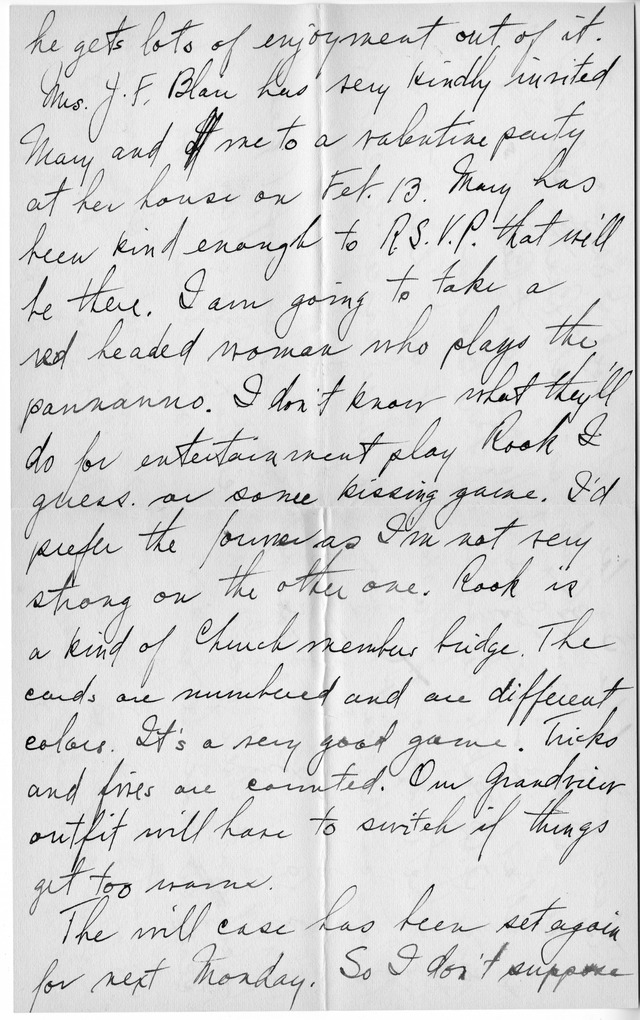 he gets lots of enjoyment out of it.
Mrs. J.F. Blair has very kindly invited
Mary and me to a valentine party
at her house on Feb. 13. Mary has
been kind enough to R.S.V.P. that we'll
be there. I am going to take a
red headed woman who plays the
pannanno. I don't know what they'll
do for entertainment play Rook I
guess. or some kissing game. I'd
prefer the former as I'm not very
strong on the other one. Rook is
a kind of Church member bridge. The
cards are numbered and are different
colors. It's a very good game. Tricks
and fives are counted. Our Grandview
outfit will have to switch if things
get too warm.
The will case has been set again
for next Monday. So I don't suppose